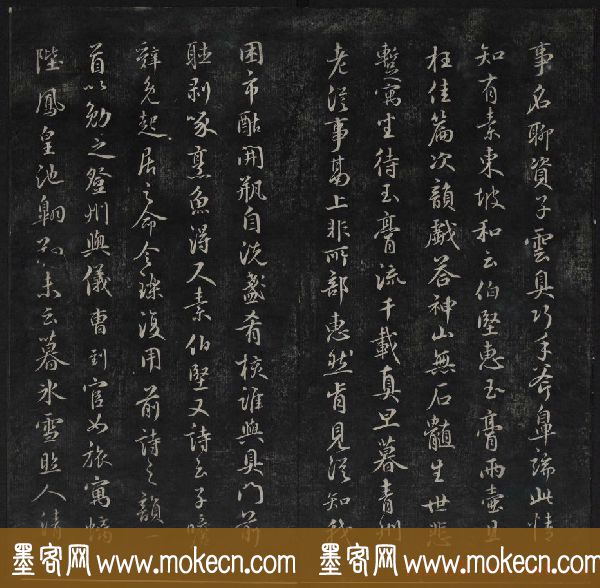 事名聊資子雲具巧手斧鼻端此情
知有素東坡和云伯堅惠玉膏兩壺且
枉佳篇次韻戲答神山無石髓生世悲
暫寓坐待玉膏流千載真旦暮青州
老從事鬲上非所部惠然肯見從知我
困市酤開瓶自洗盞肴核誰與具門前
聽剥啄烹魚得尺素伯堅又詩云子瞻
辭免起居之命令璨復用前詩之韻一
首以勉之登州與儀曹到官如旅寓螭
陛鳳皇池翱翔未云暮冰雪照人清
墨客网 www.mokecn.com 墨客网 www.mokecn.com